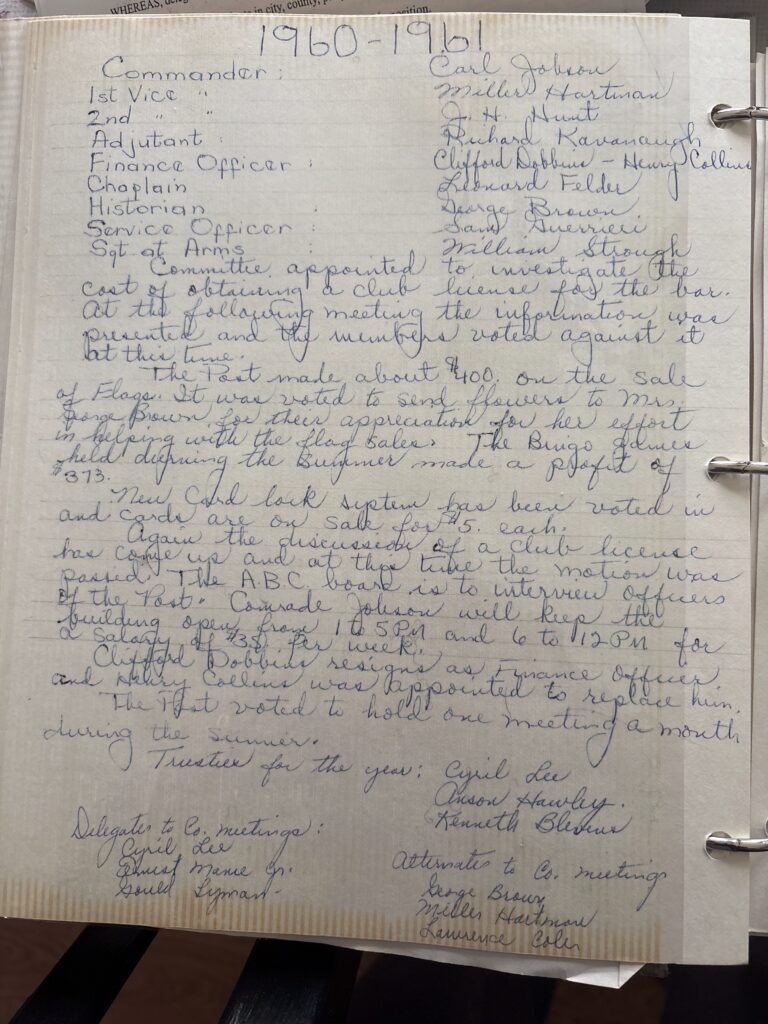 WHEREAS, in city, county,
1960-1961
Commander : Carl Jobson
1st Vice " Miller Hartman
2nd " " J. H. Hunt
Adjutant : Richard Kavanaugh
Finance Officer : Clifford Dobbins - Henry Collins
Chaplain Leonard Felder
Historian : George Brown
Service Officer : Sam Guerrieri
Sgt at Arms : William Strough
Committee appointed to investigate the
cost of obtaining a club license for the bar.
At the following meeting the information was
presented and the members voted against it
at this time.
The Post made about $400. on the sale
of Flags. It was voted to send flowers to Mrs.
George Brown for their appreciation for her effort
in helping with the flag sales. The Bingo games
held durning the Summer made a profit of
$373.
New Card lock system has been voted in
and cards are on sale for $5. each.
Again the discussion of a club license
has come up and at this time the motion was
passed. The A.B.C. board is to interview Officers
of the Post. Comrade Jobson will keep the
building open from 1 to 5 PM and 6 to 12 PM for
a salary of $35. per week.
Clifford Dobbins resigns as Finance Officer
and Henry Collins was appointed to replace him.
The Post voted to hold one meeting a month
during the summer.
Trustees for the year: Cyril Lee
Anson Hawley.
Kenneth Blevins
Delegates to Co. meetings:
Cyril Lee
Ernest Jr.
Gould Lyman
Alternates to Co. meetings
George Brown
Miller Hartman
Lawrence Coler